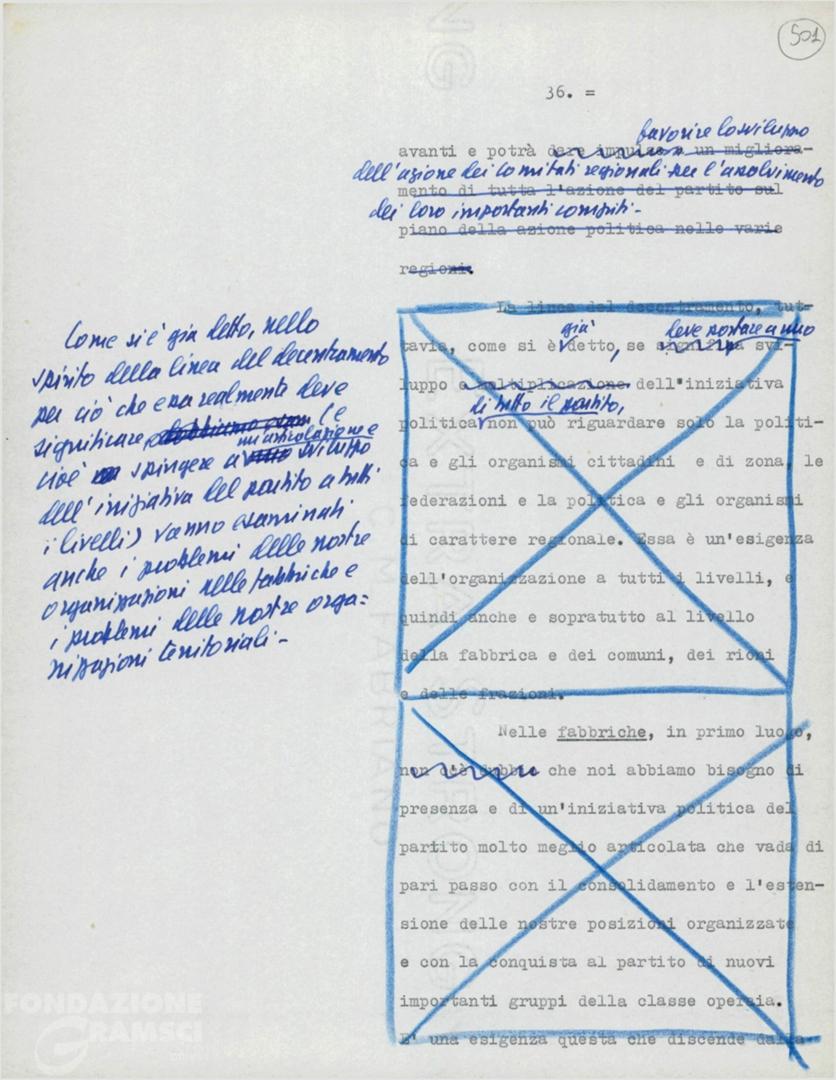 501
36. =
favorire lo sviluppo
avanti e potrà dare impulso a un migliora-
dell'azione dei comitati regionali per l'assolvimento
mento di tutta l'azione del partito sul
dei loro importanti compiti -
piano della azione politica nelle varie
regioni.
Come si è già detto, nello
spirito della linea del decentramento
per ciò che essa realmente deve
significare, (e
un'articolazione e
cioè spingere a sviluppo
dell'iniziativa del partito a tutti
i livelli) vanno esaminati
anche i problemi delle nostre
organizzazioni nelle fabbriche e
i problemi delle nostre orga=
nizzazioni territoriali -
La linea del decentramento, tut-
già deve portare a uno
tavia, come si è detto, se significa svi-
luppo e moltiplicazione dell'iniziativa
di tutto il partito,
politica non può riguardare solo la politi-
ca e gli organismi cittadini e di zona, le
federazioni e la politica e gli organismi
di carattere regionale. Essa è un'esigenza
dell'organizzazione a tutti i livelli, e
quindi anche e sopratutto al livello
della fabbrica e dei comuni, dei rioni
e delle frazioni.
Nelle fabbriche, in primo luogo,
non c'è dubbio che noi abbiamo bisogno di
presenza e di un'iniziativa politica del
partito molto meglio articolata che vada di
pari passo con il consolidamento e l'esten-
sione delle nostre posizioni organizzate
e con la conquista al partito di nuovi
importanti gruppi della classe operaia.
E' una esigenza questa che discende dalla
EXTRA STRONG
C M FABRIANO
FONDAZIONE
GRAMSCI